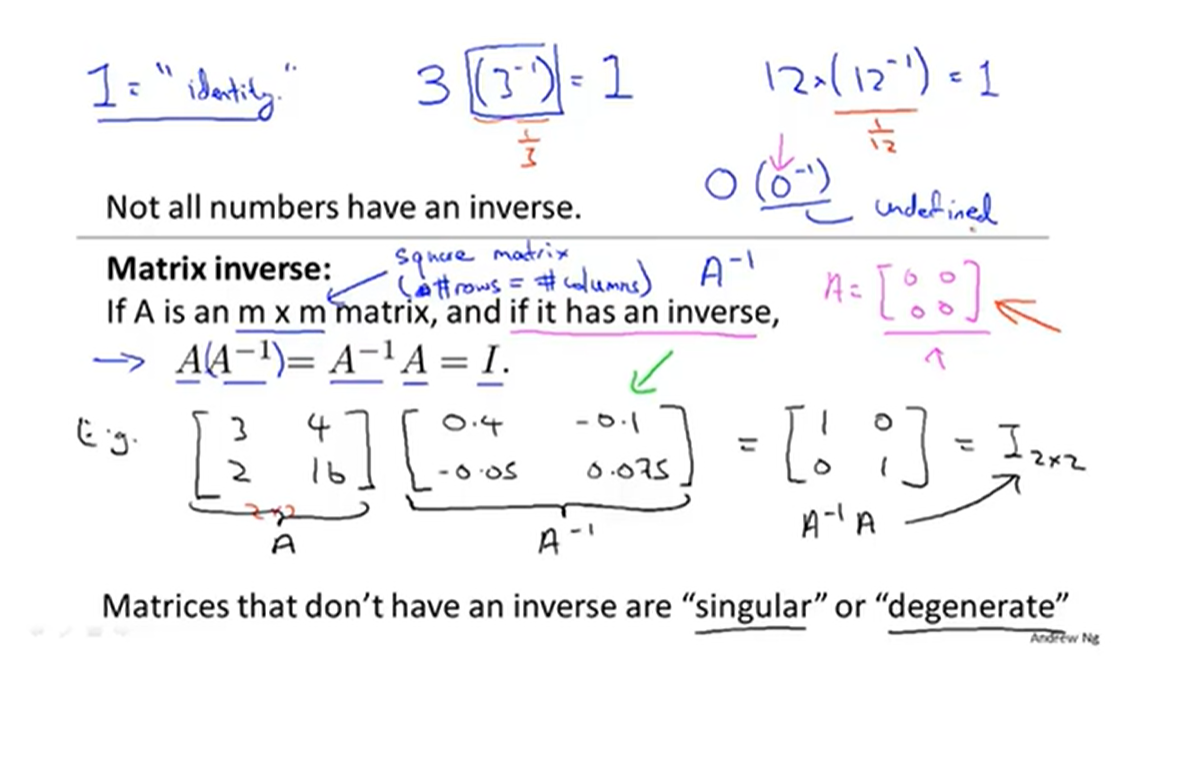 1 = "identity."
3 (3⁻¹) = 1
1/3
12×(12⁻¹) = 1
1/12
0 (0⁻¹) undefined
Not all numbers have an inverse.
square matrix
(#rows = #columns)
A⁻¹
Matrix inverse:
A = [0 0
0 0]
If A is an m x m matrix, and if it has an inverse,
→ A(A⁻¹) = A⁻¹A = I.
E.g. [3 4 [0.4 -0.1 = [1 0 = I 2×2
2 16] -0.05 0.075] 0 1]
2×2
A A⁻¹ A⁻¹A
Matrices that don't have an inverse are "singular" or "degenerate"
Andrew Ng